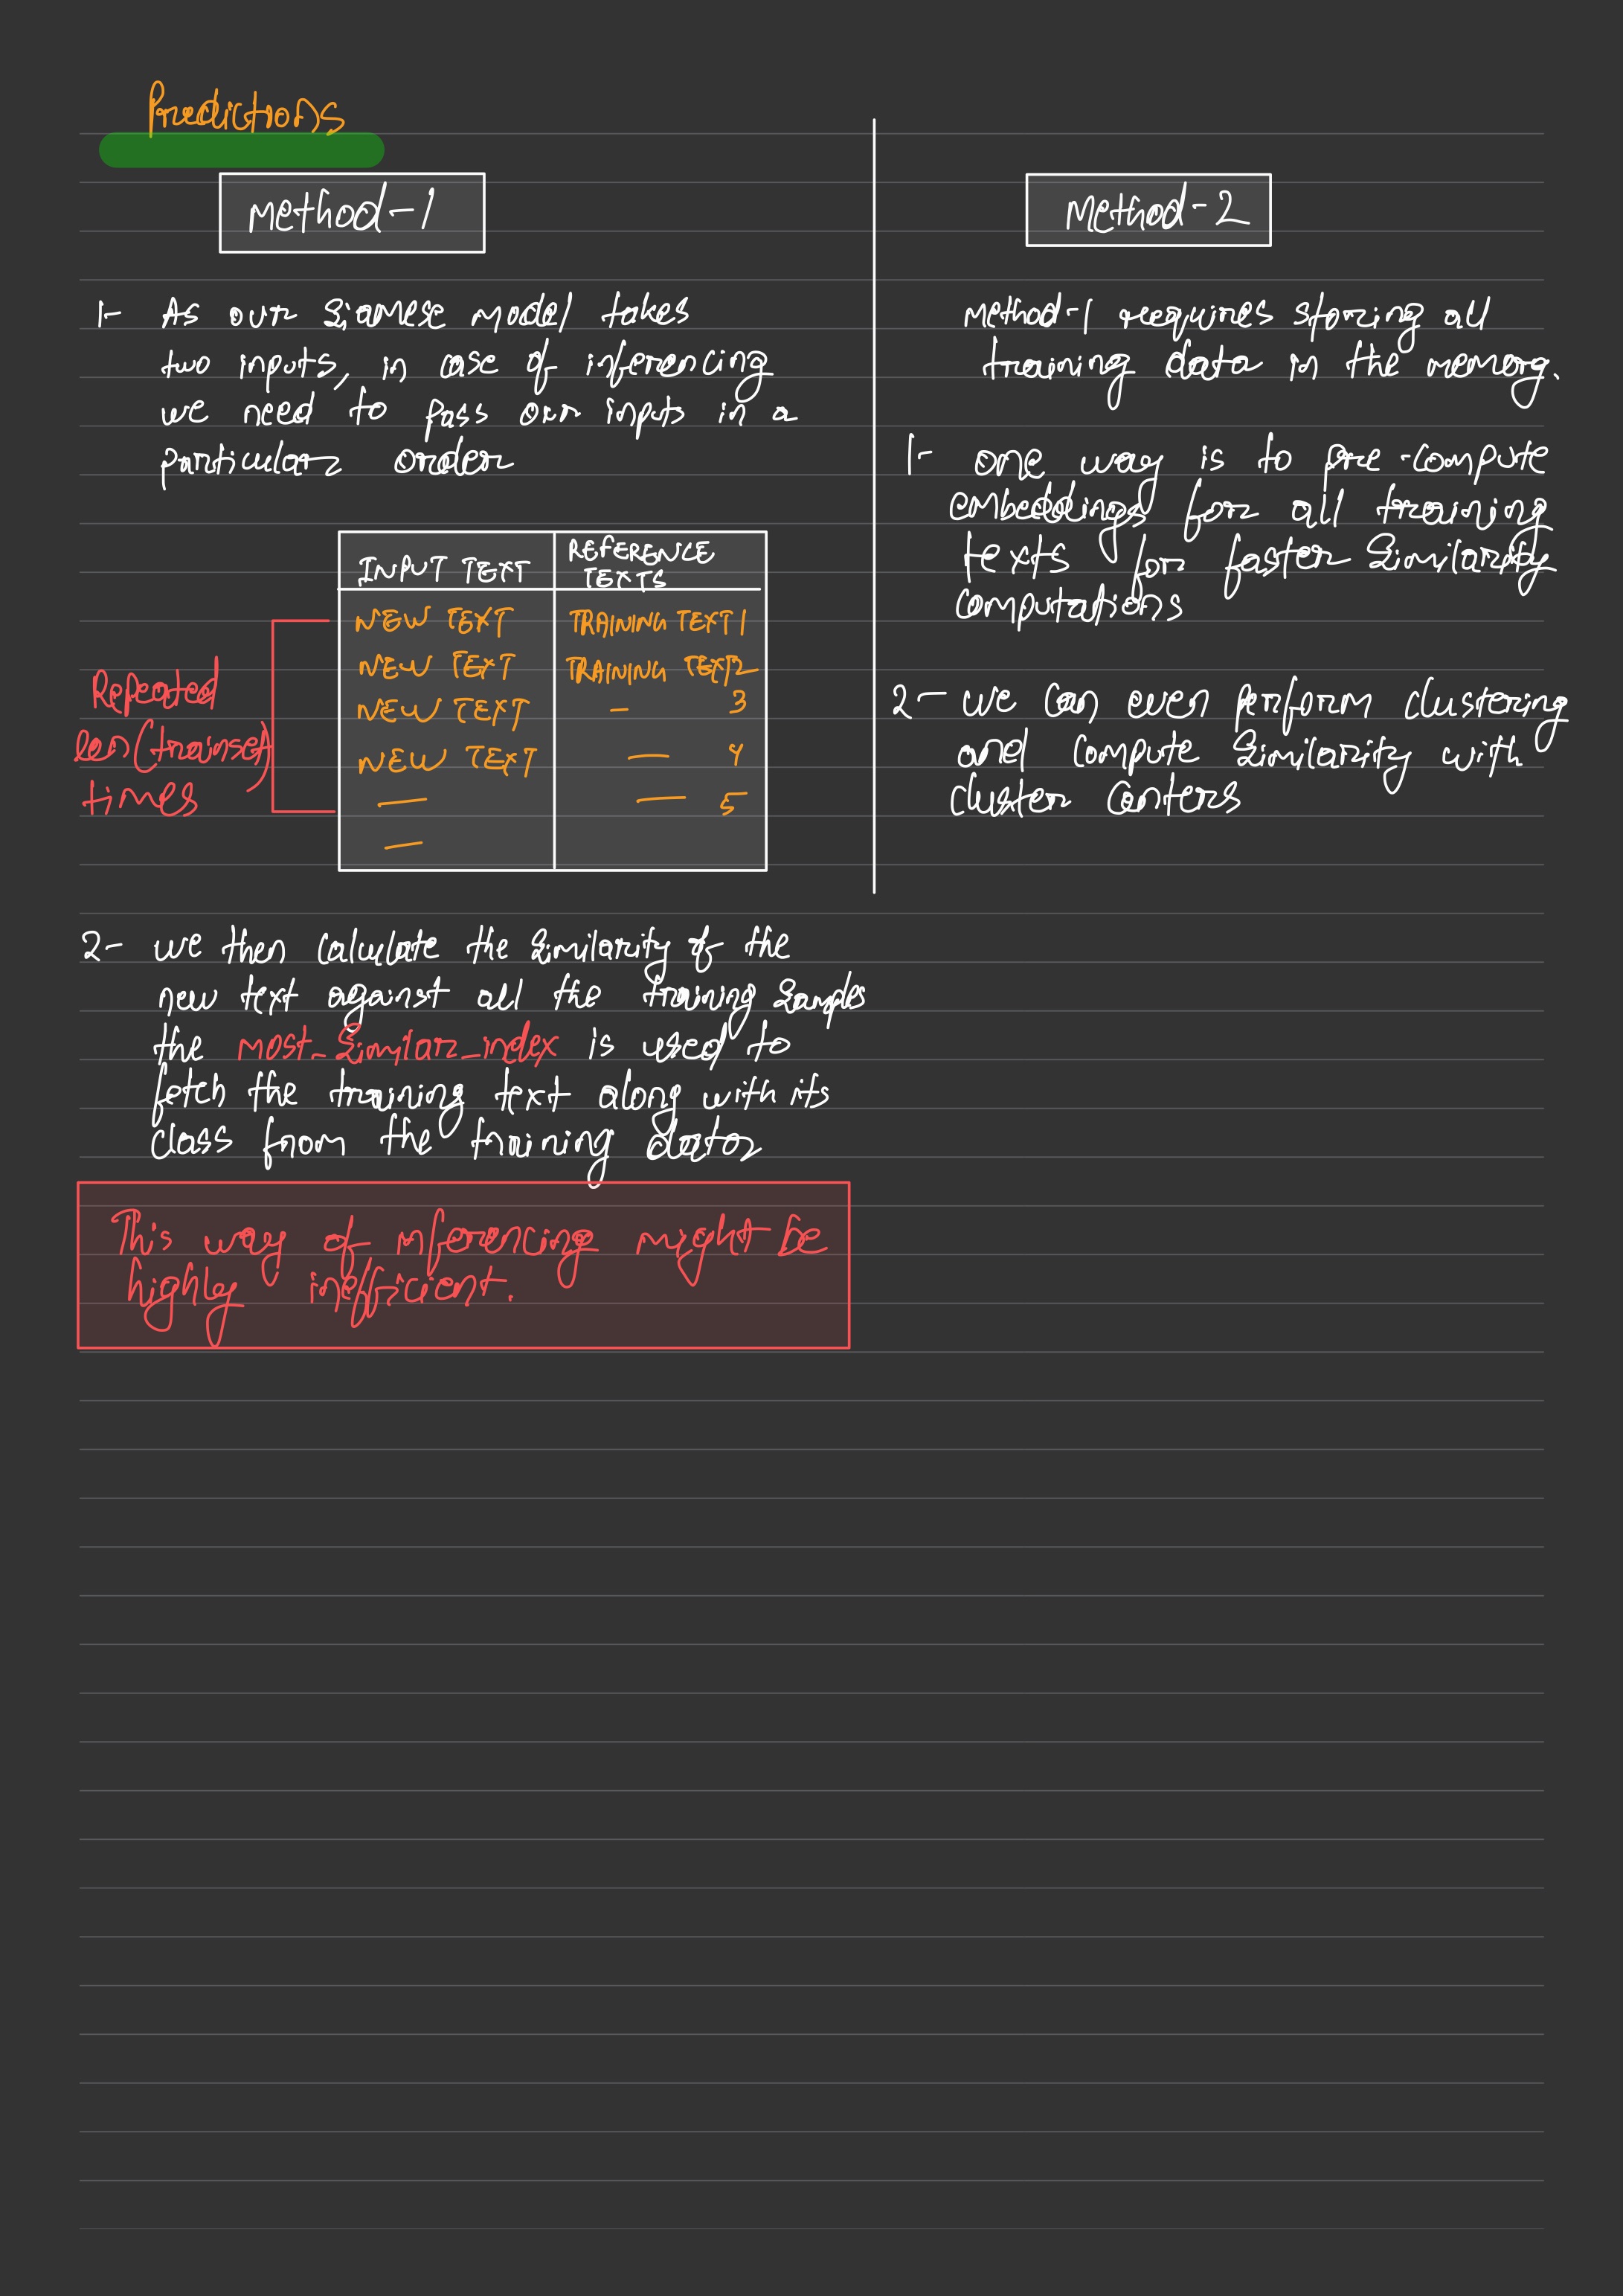 Predictions
Method-1
1- As our Siamese model takes
two inputs, in case of inferencing
we need to pass our inputs in a
particular order
INPUT TEXT
REFERENCE
TEXTS
NEW TEXT
TRAINING TEXT1
NEW TEXT
TRANING TEXT2
NEW TEXT
- 3
NEW TEXT
— 4
—
— 5
—
Repeated
len(trainset)
times
2- we then calculate the similarity of the
new text against all the training samples
the most_similar_index is used to
fetch the training text along with its
class from the training data
This way of inferencing might be
highly inefficient.
Method-2
Method-1 requires storing all
training data in the memory.
1- one way is to pre-compute
embeddings for all training
texts for faster similarity
computations
2- we can even perform clustering
and compute similarity with
cluster centers